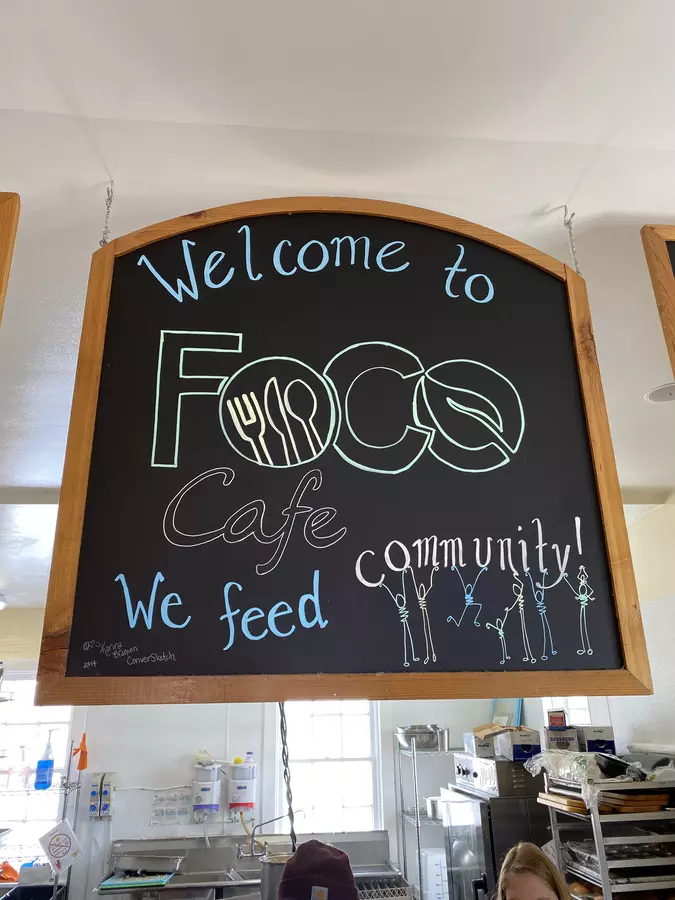 Welcome to
FOCO
Cafe
We feed community!
Karina
Branson
2014 ConverSketch